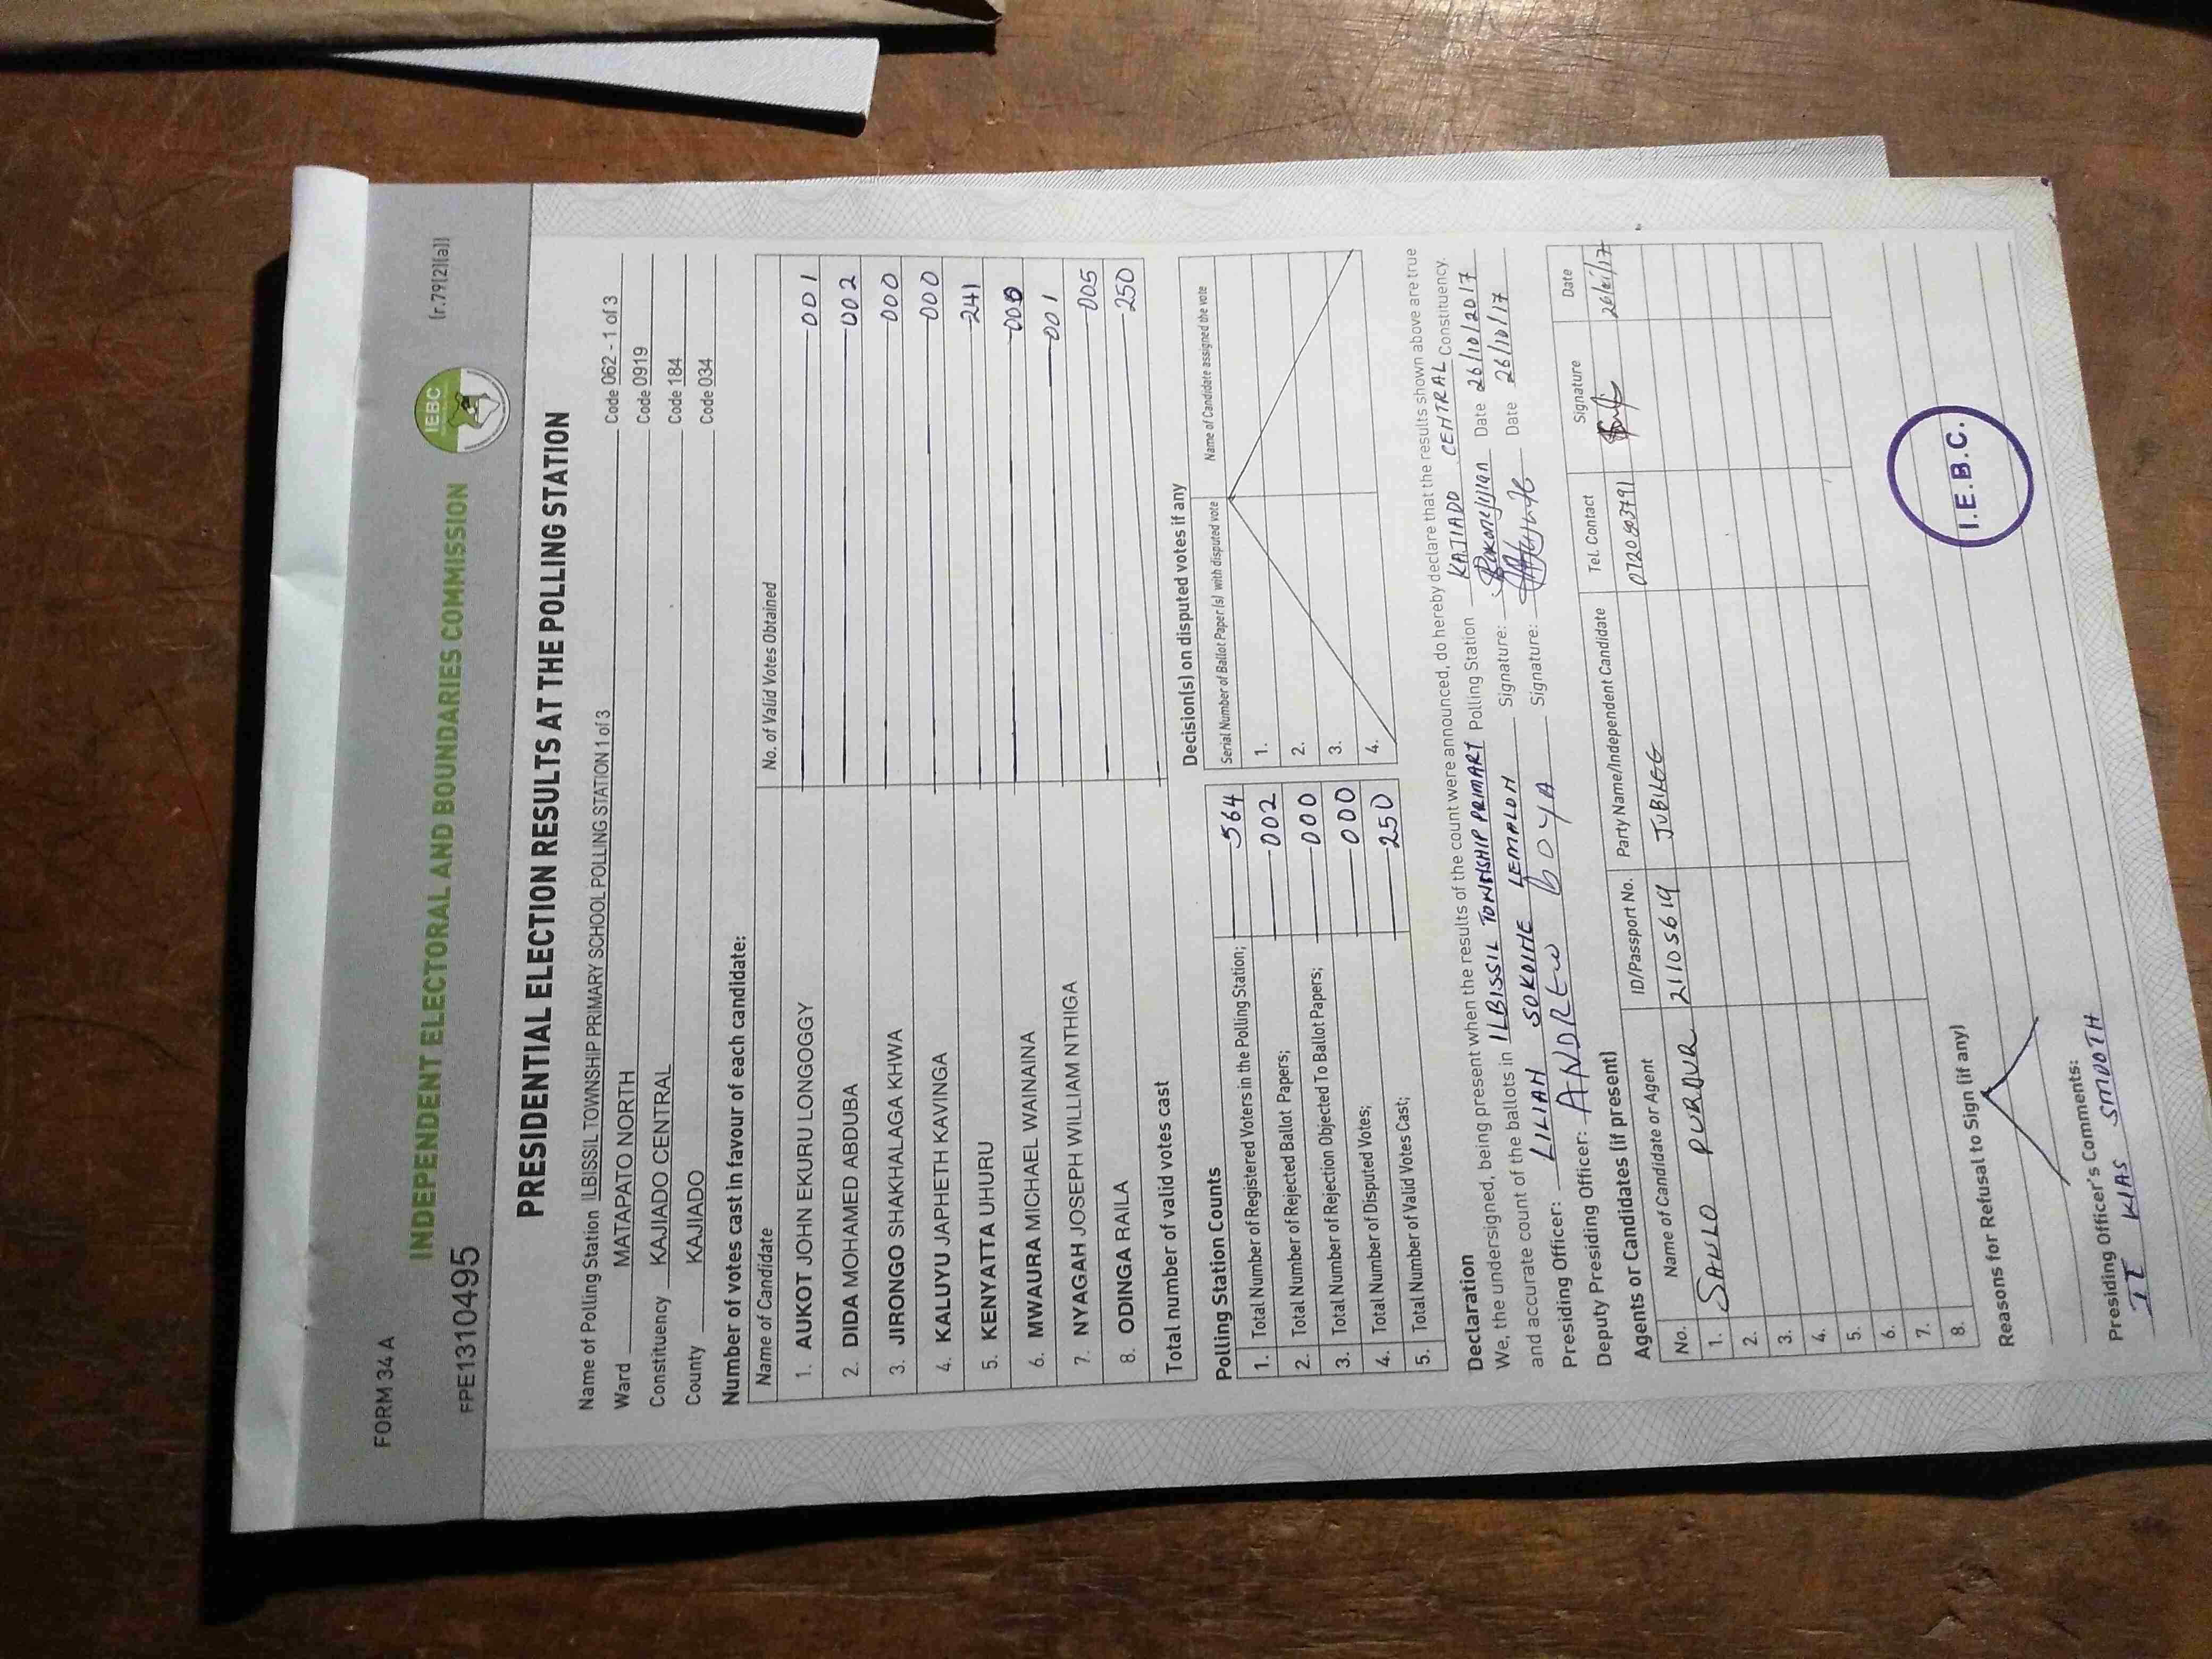 FORM 34 A
(r.79(2)(a))
INDEPENDENT ELECTORAL AND BOUNDARIES COMMISSION
IEBC
FPE1310495
PRESIDENTIAL ELECTION RESULTS AT THE POLLING STATION
Name of Polling Station ILBISSIL TOWNSHIP PRIMARY SCHOOL POLLING STATION 1 of 3 Code 062 - 1 of 3
Ward MATAPATO NORTH Code 0919
Constituency KAJIADO CENTRAL Code 184
County KAJIADO Code 034
Number of votes cast in favour of each candidate:
Name of Candidate No. of Valid Votes Obtained
1. AUKOT JOHN EKURU LONGOGGY 001
2. DIDA MOHAMED ABDUBA 002
3. JIRONGO SHAKHALAGA KHWA 000
4. KALUYU JAPHETH KAVINGA 000
5. KENYATTA UHURU 241
6. MWAURA MICHAEL WAINAINA 000
7. NYAGAH JOSEPH WILLIAM NTHIGA 001
8. ODINGA RAILA 005
Total number of valid votes cast 250
Polling Station Counts
1. Total Number of Registered Voters in the Polling Station; 564
2. Total Number of Rejected Ballot Papers; 002
3. Total Number of Rejection Objected To Ballot Papers; 000
4. Total Number of Disputed Votes; 000
5. Total Number of Valid Votes Cast; 250
Decision(s) on disputed votes if any
Serial Number of Ballot Paper(s) with disputed vote Name of Candidate assigned the vote
1.
2.
3.
4.
Declaration
We, the undersigned, being present when the results of the count were announced, do hereby declare that the results shown above are true
and accurate count of the ballots in ILBISSIL TOWNSHIP PRIMARY Polling Station KAJIADO CENTRAL Constituency.
Presiding Officer: LILIAN SOKOINE LEMALON Signature: Date 26/10/2017
Deputy Presiding Officer: ANDREW BOYA Signature: Date 26/10/17
Agents or Candidates (if present)
No. Name of Candidate or Agent ID/Passport No. Party Name/Independent Candidate Tel. Contact Signature Date
1. SAULO PURDUR 21105619 JUBILEE 0720803791
2.
3.
4.
5.
6.
7.
8.
Reasons for Refusal to Sign (if any)
Presiding Officer's Comments:
IT WAS SMOOTH
I.E.B.C.